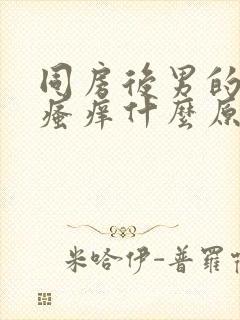 同房後男的
瘙癢什麼原
米哈伊-普羅